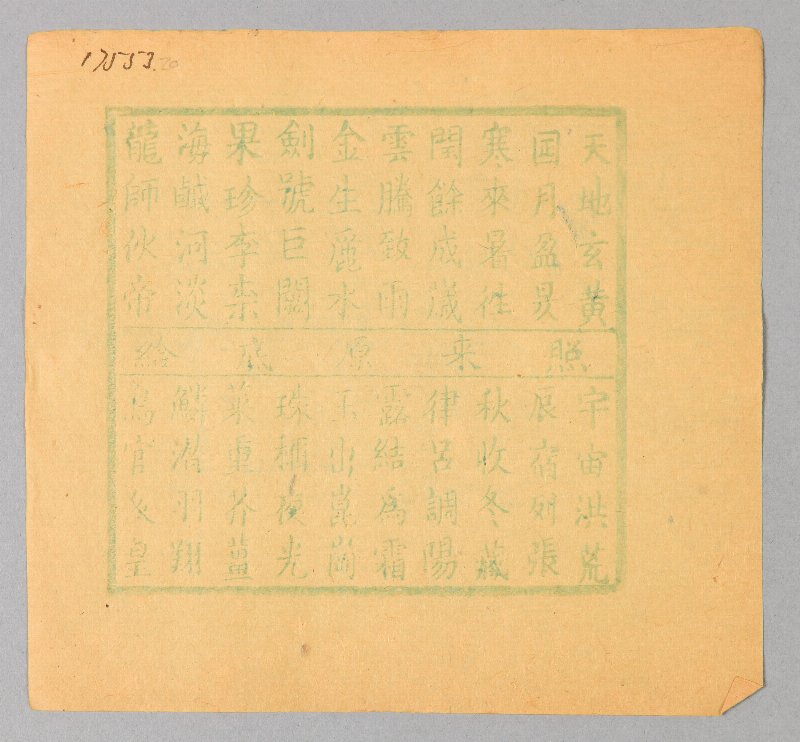 17553.20
天地玄黃
囸月盈昃
寒來暑徃
閏餘成歲
雲騰致雨
金生麗水
劍號巨闕
果珍李柰
海鹹河淡
龍師伙帝
照来原底給
宇宙洪荒
辰宿列張
秋收冬藏
律呂調陽
露結為霜
玉出崑崗
珠稱夜光
菜重芥薑
鱗潛羽翔
鳥官人皇